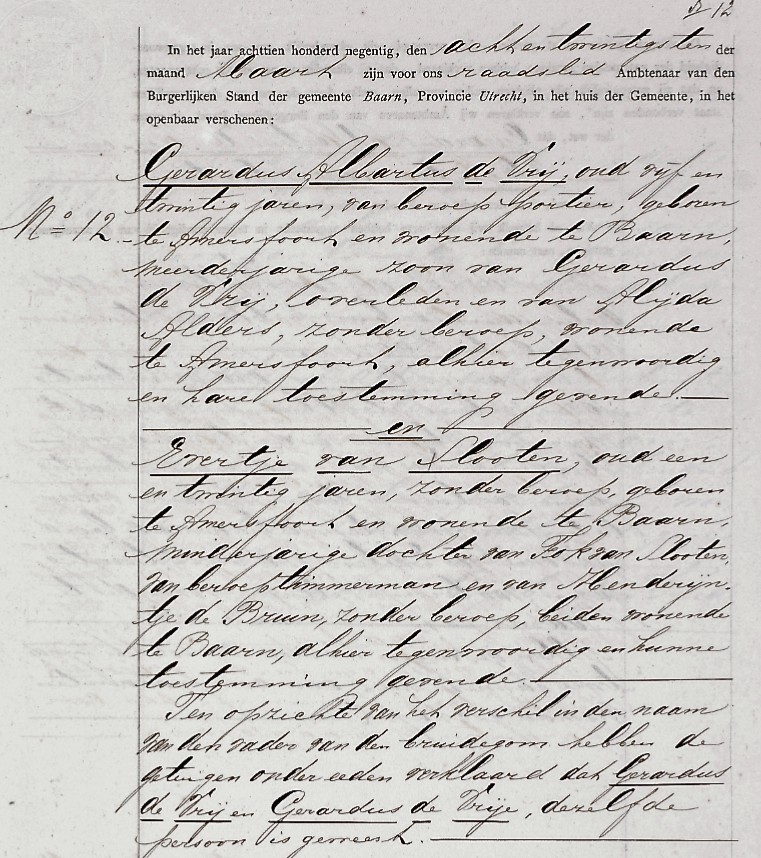 12
In het jaar achttien honderd negentig, den achtentwintigsten der
maand Maart zijn voor ons raadslid Ambtenaar van den
Burgerlijken Stand der gemeente Baarn, Provincie Utrecht, in het huis der Gemeente, in het
openbaar verschenen:
Gerardus Albartus de Vrij, oud vijf en
twintig jaren, van beroep portier, geboren
No 12. te Amersfoort en wonende te Baarn,
meerderjarige zoon van Gerardus
de Vrij, overleden en van Alijda
Alders, zonder beroep, wonende
te Amersfoort, alhier tegenwoordig
en hare toestemming gevende.
en
Evertje van Slooten, oud een
en twintig jaren, zonder beroep, geboren
te Amersfoort en wonende te Baarn,
minderjarige dochter van Fok van Slooten,
van beroep timmerman en van Henderijn-
tje de Bruin, zonder beroep, beiden wonende
te Baarn, alhier tegenwoordig en hunne
toestemming gevende.
Ten opzichte van het verschil in den naam
van den vader van den bruidegom hebben de
getuigen onder eeden verklaard dat Gerardus
de Vrij en Gerardus de Vrije, dezelfde
persoon is geweest.